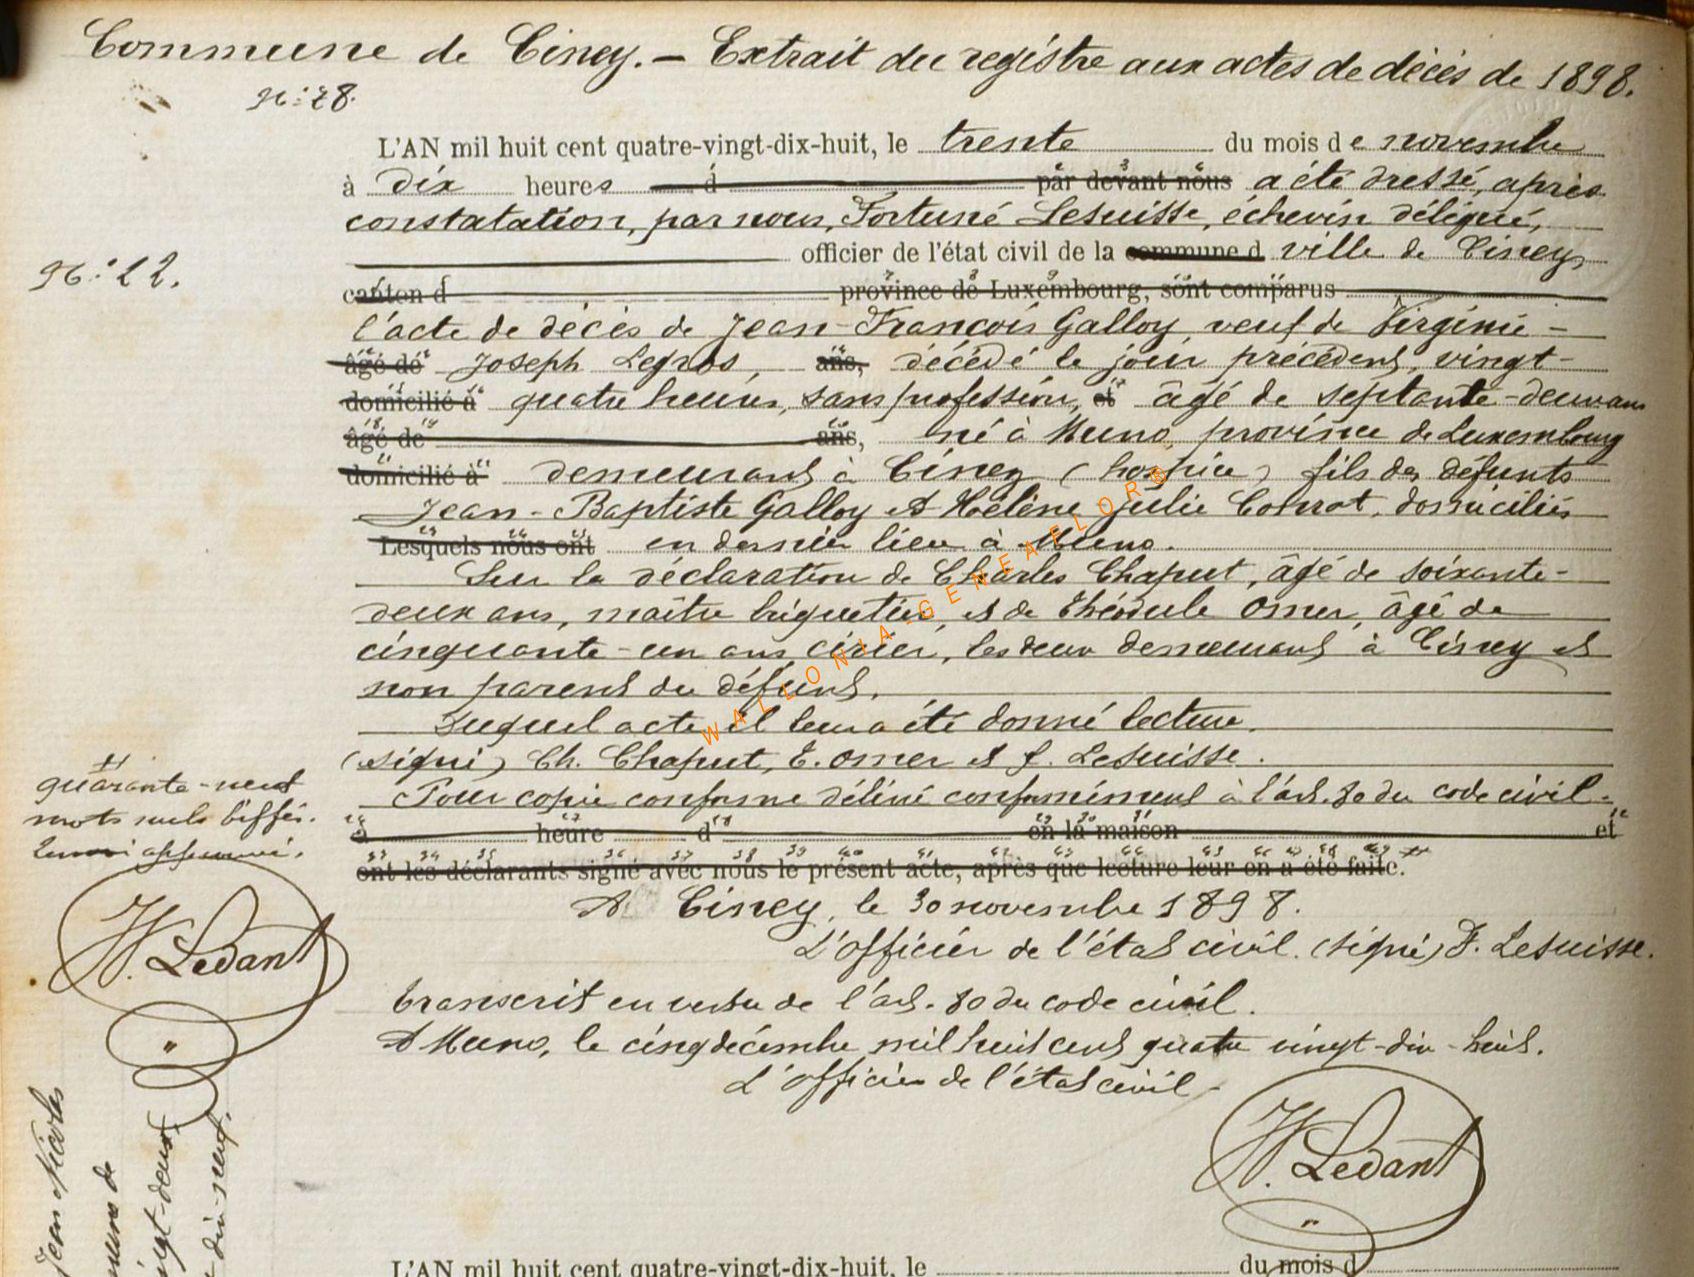 Commune de Ciney. — Extrait du registre aux actes de décès de 1898.
N°: 78.
L'AN mil huit cent quatre-vingt-dix-huit, le trente du mois de novembre
à dix heures d par devant nous a été dressé, après
constatation, par nous, Fortuné Lesuisse, échevin délégué,
officier de l'état civil de la commune d ville de Ciney,
N°: 22.
canton d province de Luxembourg, sont comparus
l'acte de décès de Jean-François Galloy, veuf de Virginie-
âgé de Joseph Legros, ans, décédé le jour précédent, vingt-
domicilié à quatre heures, sans profession, et âgé de septante-deux ans
âgé de ans, né à Muno, province de Luxembourg
domicilié à demeurant à Ciney (hospice) fils des défunts
Jean-Baptiste Galloy et Hélène Julie Colnrot, domiciliés
Lesquels nous ont en dernier lieu à Muno.
Sur la déclaration de Charles Chaput, âgé de soixante-
deux ans, maître briquetier, et de Théodule Omer, âgé de
cinquante-un ans cirier, les deux demeurant à Ciney et
non parent du défunt.
Duquel acte il leur a été donné lecture.
(signé) Ch. Chaput, T. Omer et F. Lesuisse.
quarante-neuf
mots nuls biffés.
Pour copie conforme délivré conformément à l'art. 80 du code civil.
à heure d en la maison et
ont les déclarants signé avec nous le présent acte, après que lecture leur en a été faite.
A Ciney, le 30 novembre 1898.
L'officier de l'état civil. (signé) F. Lesuisse.
H. Ledant
transcrit en vertu de l'art. 80 du code civil.
A Muno, le cinq décembre mil huit cent quatre vingt-dix-huit.
L'officier de l'état civil.
H. Ledant
Jean Nicolas
de
vingt-deux
dix-neuf.
L'AN mil huit cent quatre-vingt-dix-huit, le du mois d
WALLONIA-GENEAFLORE